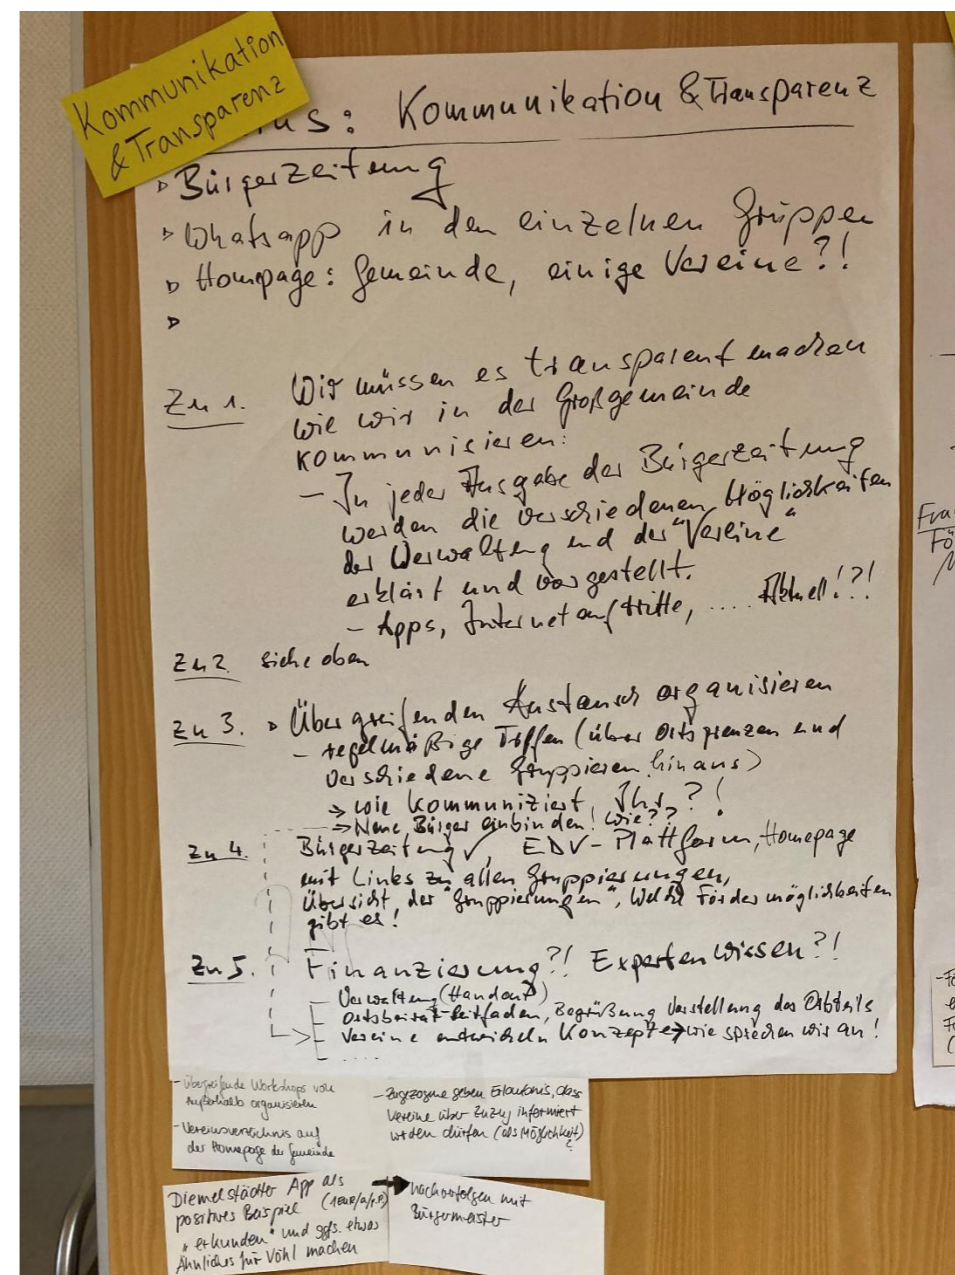 Kommunikation
& Transparenz
us: Kommunikation & Transparenz
▹ Bürgerzeitung
▹ Whatsapp in den einzelnen Gruppen
▹ Homepage: Gemeinde, einige Vereine?!
▹
Zu 1. Wir müssen es transparent machen
wie wir in der Großgemeinde
kommunizieren:
- In jeder Ausgabe der Bürgerzeitung
werden die verschiedenen Möglichkeiten
der Verwaltung und der "Vereine"
erklärt und vorgestellt.
- Apps, Internetauftritte, .... Aktuell!?!
Zu 2. siehe oben
Zu 3. ▹ Übergreifenden Austausch organisieren
- regelmäßige Treffen (über Ortsgrenzen und
verschiedene Gruppieren hinaus)
→ wie kommuniziert Ihr?!
→ Neue Bürger einbinden! Wie??
Zu 4. Bürgerzeitung ✓, EDV-Plattform, Homepage
mit Links zu allen Gruppierungen,
Übersicht der "Gruppierungen", Welche Fördermöglichkeiten
gibt es!
Zu 5. Finanzierung?! Expertenwissen?!
- Verwaltung (Handout)
- Ortsbeirat-Leitfaden, Begrüßung Vorstellung des Ortsteils
- Vereine entwickeln Konzepte → wie sprechen wir an!
- ....
- Übergreifende Workshops von
Außerhalb organisieren
- Vereinsverzeichnis auf
der Homepage der Gemeinde
- Zugezogene geben Erlaubnis, dass
Vereine über Zuzug informiert
werden dürfen (als Möglichkeit)
?
Diemelstädter App als
positives Beispiel (1EUR/a/p.P.)
"erkunden" und ggfs. etwas
Ähnliches für Vöhl machen
nachverfolgen mit
Bürgermeister